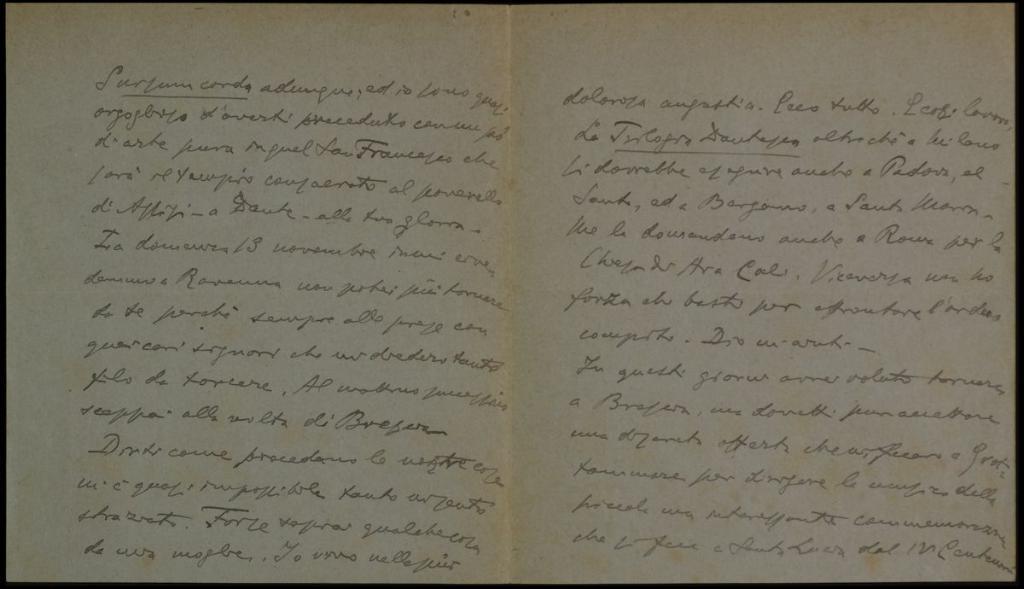 Sursum corda adunque, ed io sono quasi
orgoglioso d'averti preceduto con un pò
di arte pura in quel San Francesco che
sarà il tempio consacrato al poverello
di Assisi - a Dante - alla tua gloria -
La domenica 13 novembre in cui
a Ravenna non potei più tornare
da te perchè sempre alle prese con
quei cari signori che mi diedero tanto
filo da torcere. Al mattino successivo
scappai alla volta di Brescia
Dirti come procedano le nostre cose
mi è quasi impossibile tanto mi sento
straziato. Forse saprai qualche cosa
da mia moglie. Io vivo nella più
dolorosa angustia. Ecco tutto. E così lavoro,
La Trilogia Dantesca oltrechè a Milano
si dovrebbe eseguire anche a Padova, al
Santo, ed a Bergamo, a Santa Maria -
Me la domandano anche a Roma per la
Chiesa di Ara Coeli. Viceversa non ho
forza che basti per affrontare l'arduo
compito. Dio m'aiuti -
In questi giorni avrei voluto tornare
a Brescia, ma dovetti pur accettare
una discreta offerta che mi fecero a Grot-
tammare per dirigere la musica della
piccola ma interessante commemorazione
che si fece a Santa Lucia dal IV Centenario